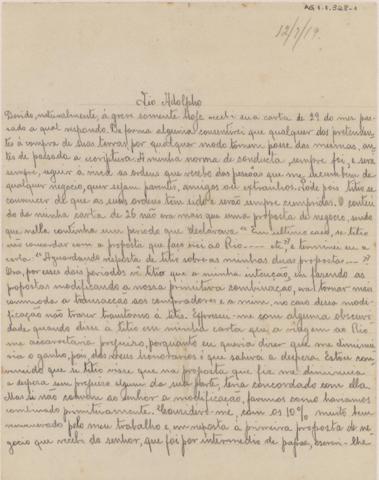 AG 1.1.328-1
12/7/19.
Tio Adolpho
Devido, naturalmente, á greve somente hoje recebi sua carta de 29 do mez pas-
sado a qual respondo. De forma alguma consentirei que qualquer dos pretenden-
tes á compra de suas terras por qualquer modo tomem posse das mesmas, an-
tes de passada a escriptura. A minha norma de conducta, sempre foi, e será
sempre, seguir á risca as ordens que recebo das pessoas que me incumbem de
qualquer negocio, quer sejam parentes, amigos ou extranhos. Pode pois titio se
convencer de que as suas ordens têm sido e serão sempre cumpridas. O conteú-
do da minha carta de 26 não era mais que uma proposta de negocio, sendo
que nella continha um periodo que declarava "Em ultimo caso, se titio
não concordar com a proposta que faço irei ao Rio --- etc", e terminei eu a
carta "Aguardando resposta de titio sobre as minhas duas propostas ---"
Ora, por esses dois periodos vê titio que a minha intenção, em fazendo as
propostas modificando a nossa primitiva combinação, era tornar mais
commoda a transacção aos compradores e a mim, no caso dessa modifi-
cação não trazer transtorno á titio. Expressei-me com alguma obscuri-
dade quando disse á titio em minha carta que a viagem ao Rio
me accarretaria prejuizo, porquanto eu queria dizer que me diminui-
ria o ganho, pois dos meus honorarios é que sahiria a despeza. Estou con-
vencido que si titio visse que na proposta que fiz me diminuia
a despeza, sem prejuizo algum da sua parte, teria concordado com ella.
Mas si não convem ao senhor a modificação, faremos como haviamos
combinado primitivamente. Considero-me, com os 10% muito bem
remunerado pelo meu trabalho e, em resposta á primeira proposta de ne-
gocio que recebi do senhor, que foi por intermedio de papae, escrevi-lhe